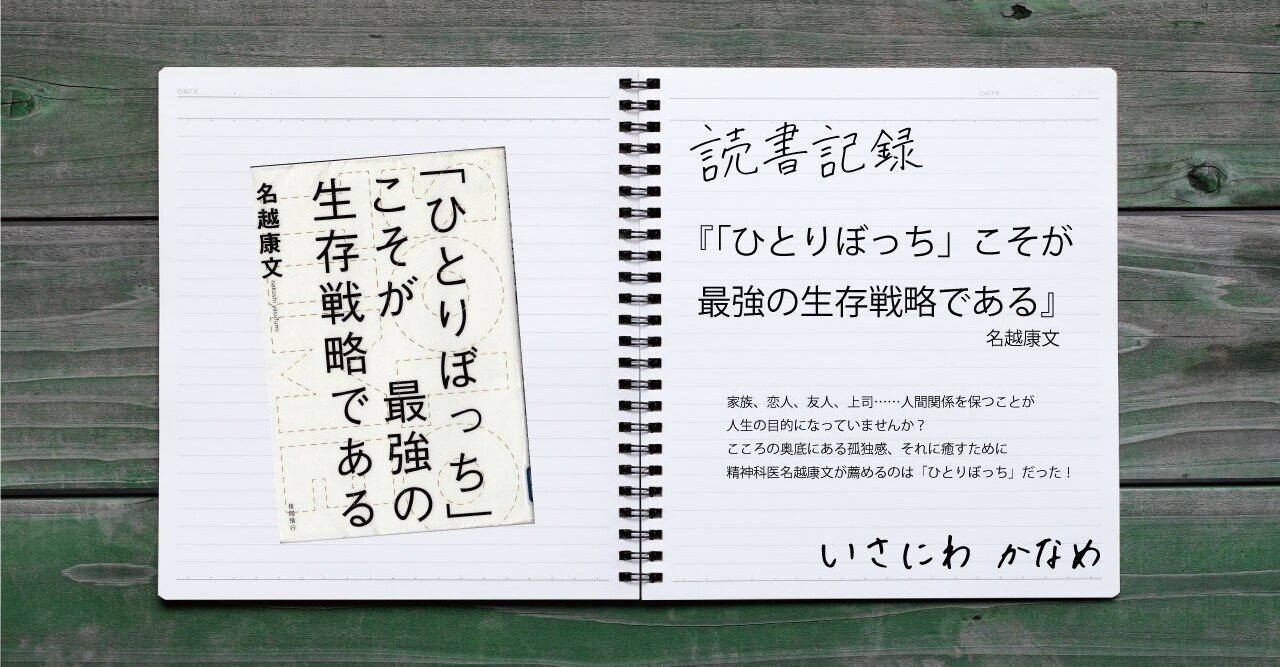 DATE
「ひとりぼっち」
こそが 最強の
生存戦略である
名越康文
夜間飛行
DATE
読書記録
『「ひとりぼっち」こそが
最強の生存戦略である』
名越康文
家族、恋人、友人、上司……人間関係を保つことが
人生の目的になっていませんか？
こころの奥底にある孤独感、それに癒すために
精神科医名越康文が薦めるのは「ひとりぼっち」だった！
いさにわ かなめ